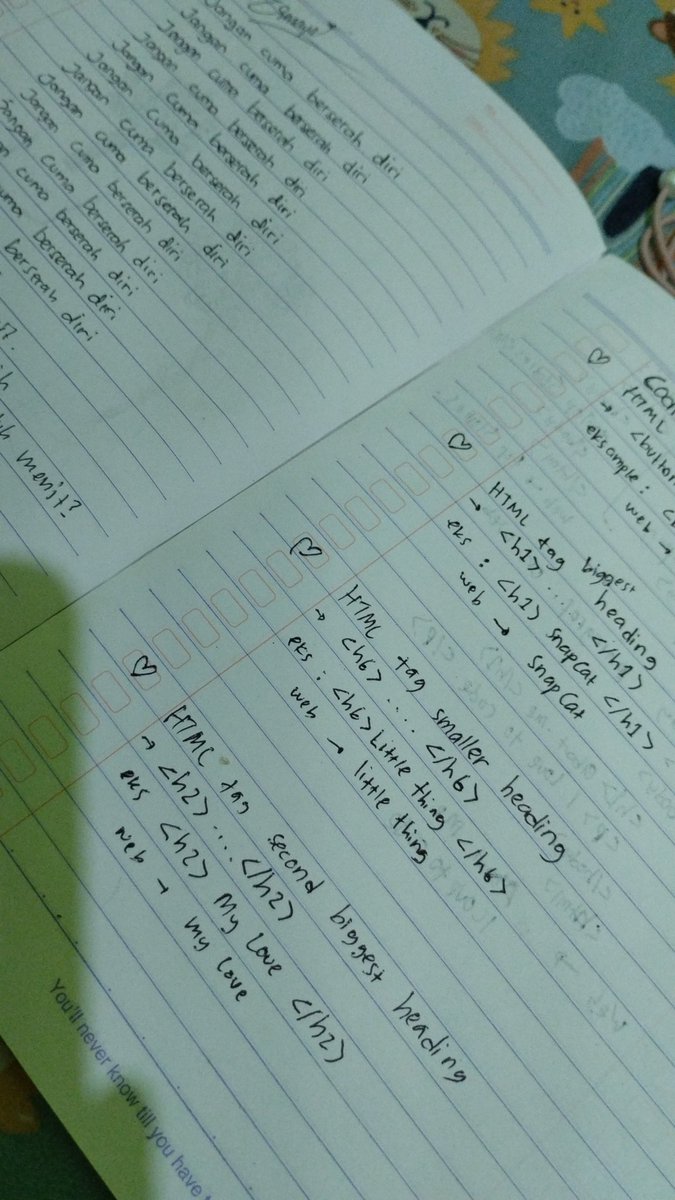 Jangan cuma berserah diri
Jangan cuma berserah diri
Jangan cuma berserah diri
Jangan cuma berserah diri
Jangan cuma berserah diri
Jangan cuma berserah diri
Jangan cuma berserah diri
Jangan cuma berserah diri
cuma berserah diri
cuma berserah diri
berserah diri
menit?
HTML
<button
eksample : <
web →
♡ HTML tag biggest heading
→ <h1> .... </h1>
eks : <h1> SnapCat </h1>
web → SnapCat
♡ HTML tag smaller heading
→ <h6> .... </h6>
eks : <h6> Little thing </h6>
web → little thing
♡ HTML tag second biggest heading
→ <h2> .... </h2>
eks <h2> My Love </h2>
web → my love
You'll never know till you have